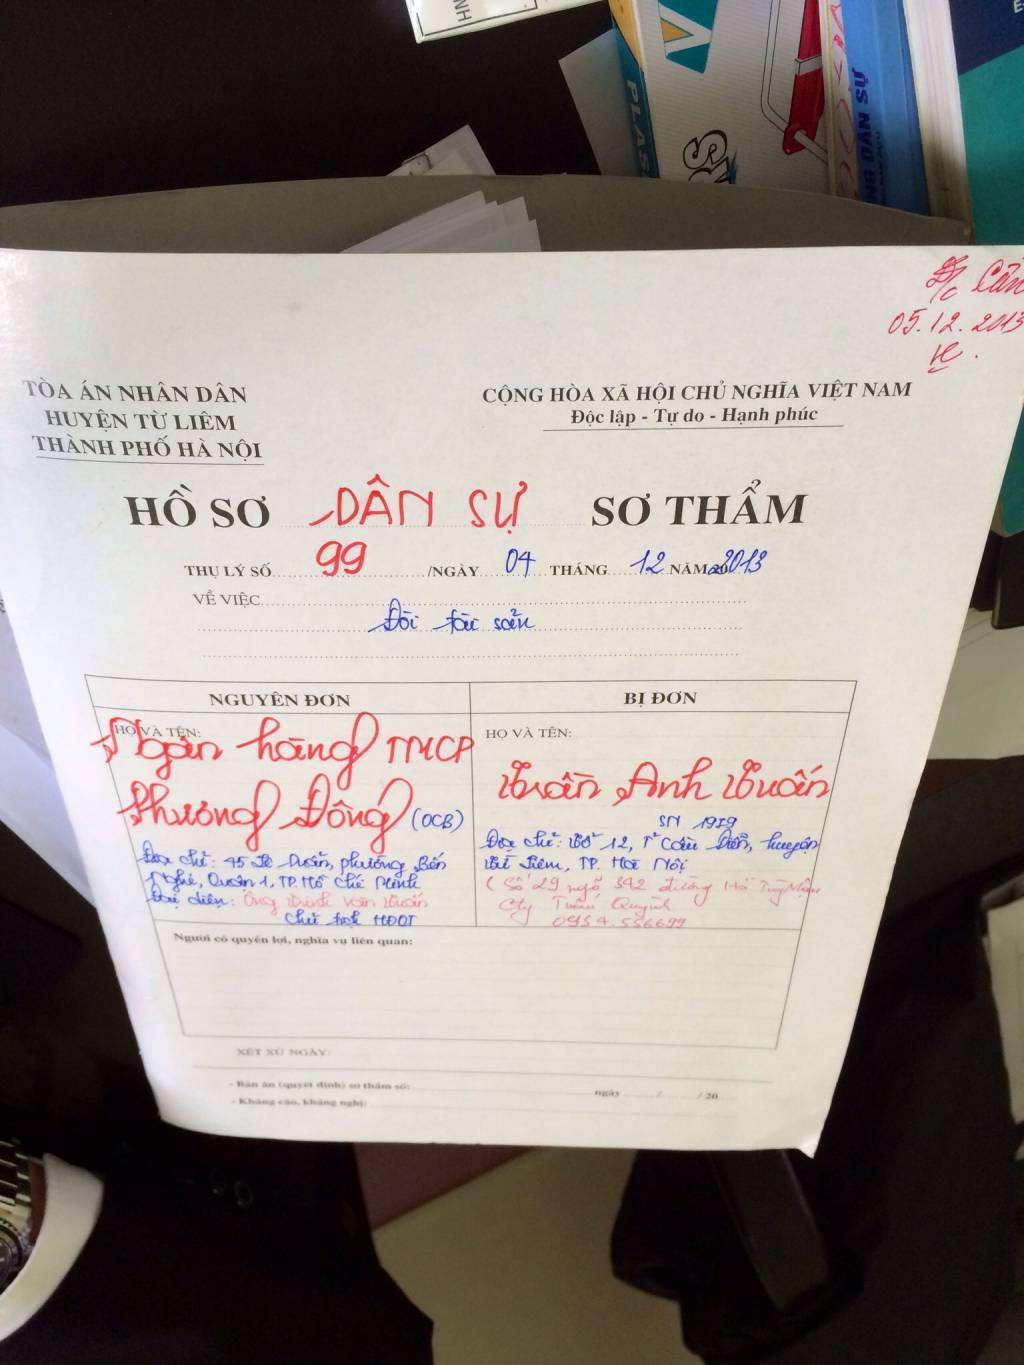 PLAS
RS
NG DÂN SỰ
Đ/c Cần
05.12.2013
TÒA ÁN NHÂN DÂN
HUYỆN TỪ LIÊM
THÀNH PHỐ HÀ NỘI
CỘNG HÒA XÃ HỘI CHỦ NGHĨA VIỆT NAM
Độc lập - Tự do - Hạnh phúc
HỒ SƠ DÂN SỰ SƠ THẨM
THỤ LÝ SỐ 99 /NGÀY 04 THÁNG 12 NĂM 2013
VỀ VIỆC
Đòi tài sản
NGUYÊN ĐƠN
HỌ VÀ TÊN:
Ngân hàng TMCP
Phương Đông (OCB)
Địa chỉ: 45 Lê Duẩn, phường Bến
Nghé, Quận 1, TP. Hồ Chí Minh
Đại diện: Ông Trịnh Văn Tuấn
Chủ tịch HĐQT
BỊ ĐƠN
HỌ VÀ TÊN:
Trần Anh Tuấn
SN 1979
Địa chỉ: Tổ 12, TT Cầu Diễn, huyện
Từ Liêm, TP. Hà Nội
(Số 29 ngõ 342 đường Hồ Tùng Mậu
Cty Tuấn Quỳnh
0954.556699
Người có quyền lợi, nghĩa vụ liên quan:
XÉT XỬ NGÀY:
- Bản án (quyết định) sơ thẩm số: ngày / / 20
- Kháng cáo, kháng nghị: